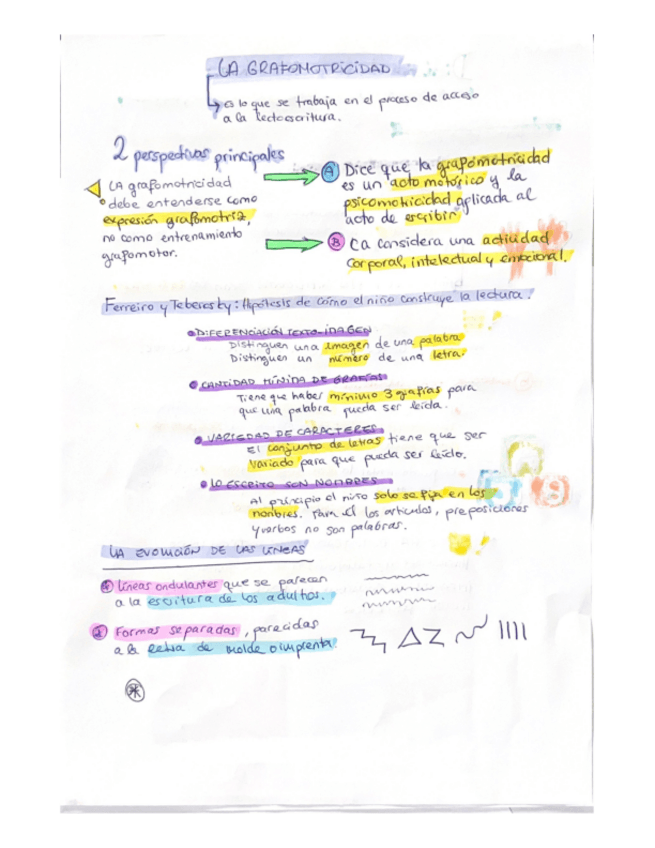 LA GRAFOMOTRICIDAD
Es lo que se trabaja en el proceso de acceso
a la lectoescritura.
2 perspectivas principales
LA grafomotricidad
debe entenderse como
expresión grafomotriz,
no como entrenamiento
grafomotor.
A Dice que la grafomotricidad
es un acto motórico y la
psicomotricidad aplicada al
acto de escribir
B La considera una actividad
corporal, intelectual y emocional.
Ferreiro y Teberosky: Hipótesis de cómo el niño construye la lectura.
DIFERENCIACIÓN TEXTO-IMAGEN
Distinguen una imagen de una palabra
Distinguen un número de una letra.
CANTIDAD MÍNIMA DE GRAFÍAS
Tiene que haber mínimo 3 grafías para
que una palabra pueda ser leída.
VARIEDAD DE CARACTERES
El conjunto de letras tiene que ser
variado para que pueda ser leído.
LO ESCRITO SON NOMBRES
Al principio el niño solo se fija en los
nombres. Para él los artículos, preposiciones
y verbos no son palabras.
LA EVOLUCIÓN DE LAS LÍNEAS
1 Líneas ondulantes que se parecen
a la escritura de los adultos.
2 Formas separadas, parecidas
a la letra de molde o imprenta.